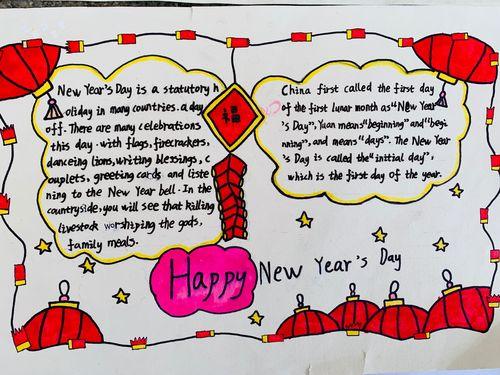 New Year's Day is a statutory h
oliday in many countries. a day
off. There are many celebrations
this day. with flags, firecrackers,
danceing lions, writing blessings, c
ouplets, greeting cards and liste
ning to the New Year bell. In the
countryside, you will see that killing
livestock worshiping the gods,
family meals.
福
China first called the first day
of the first lunar month as "New Year
's Day", Yuan means "beginning" and "begi
nning", and means "days". The New Year
's Day is called the "initial day",
which is the first day of the year.
Happy New Year's Day